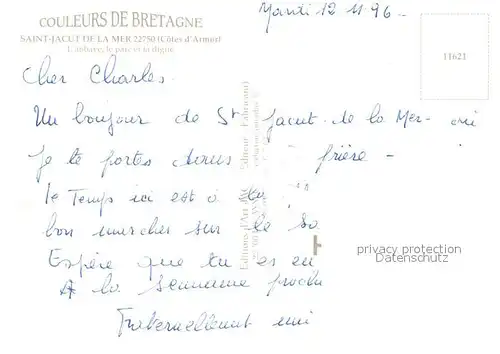 COULEURS DE BRETAGNE
SAINT-JACUT DE LA MER 22750 (Côtes d'Armor)
L'abbaye, le parc et la digue
Mardi 12 11 96 -
11621
Cher Charles
Un bonjour de St Jacut de la Mer - où
Je te portes dans prière -
le Temps ici est à
bon marcher sur le
Espère que tu es en
A la semaine
Fraternellement
privacy protection
Datenschutz